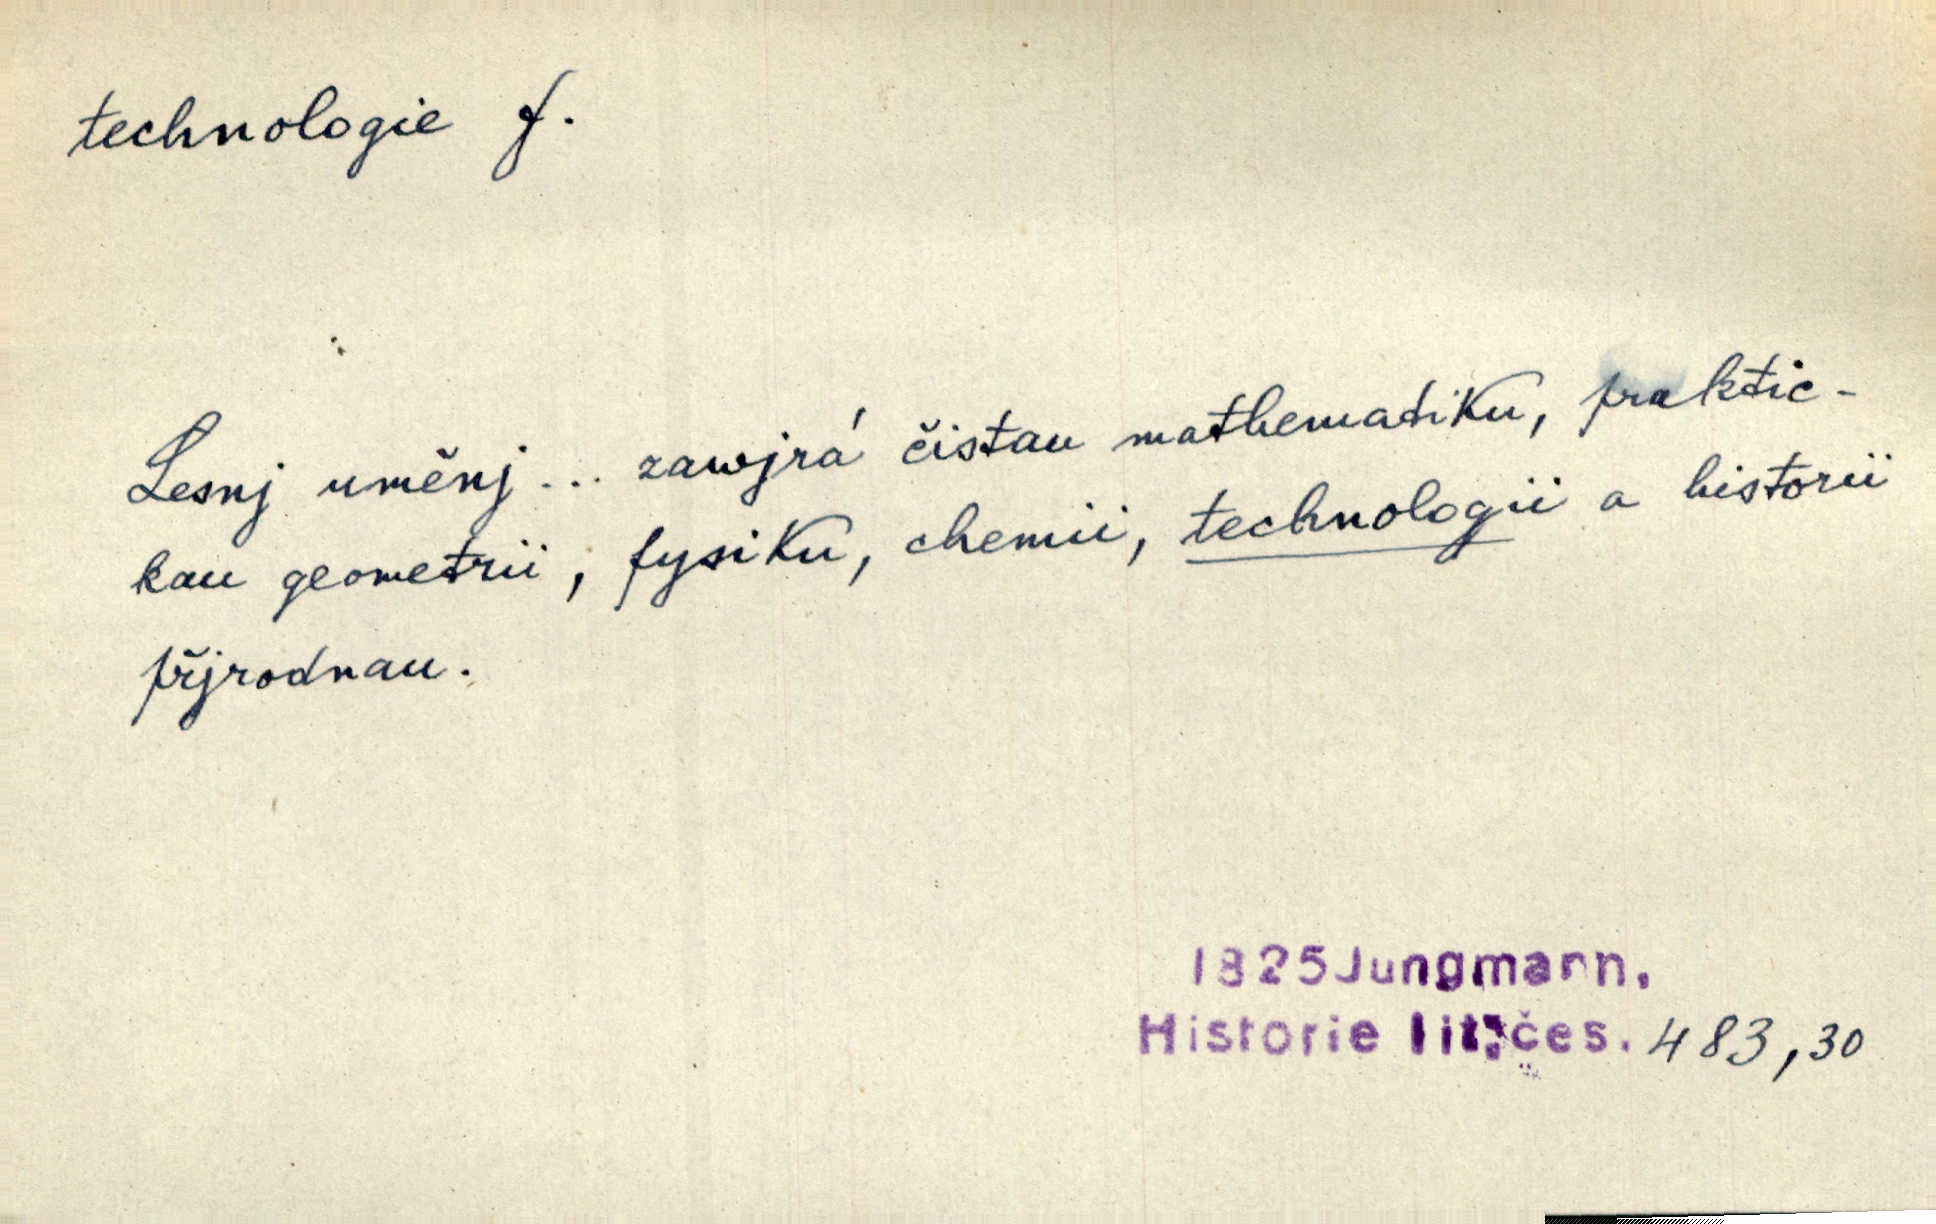 technologie f.
Lesnj uměnj ... zawjrá čistau mathematiku, praktic-
kau geometrii, fysiku, chemii, technologii a historii
přjrodnau.
1825 Jungmann,
Historie lit. čes. 483, 30